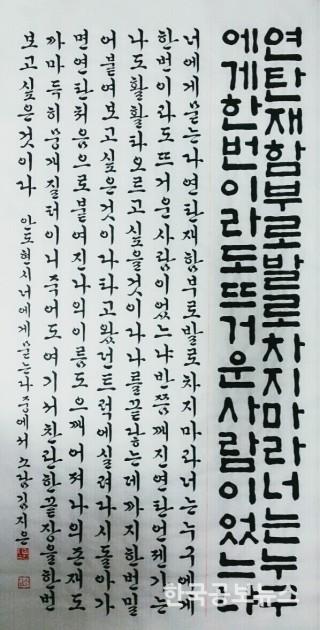 연탄재함부로발로차지마라너는누구
에게한번이라도뜨거운사람이었느냐
너에게묻는다연탄재함부로발로차지마라너는누구에게
한번이라도뜨거운사람이었느냐반쯤깨진연탄언젠가는
나도활활타오르고싶을것이다나를끝닿는데까지한번밀
어붙여보고싶은것이다타고왔던트럭에실려다시돌아가
면연탄처음으로붙여진나의이름도으깨어져나의존재도
까마득히뭉개질터이니죽어도여기서찬란한끝장을한번
보고싶은것이다 안도현시너에게묻는다중에서 김지은
한국공보뉴스